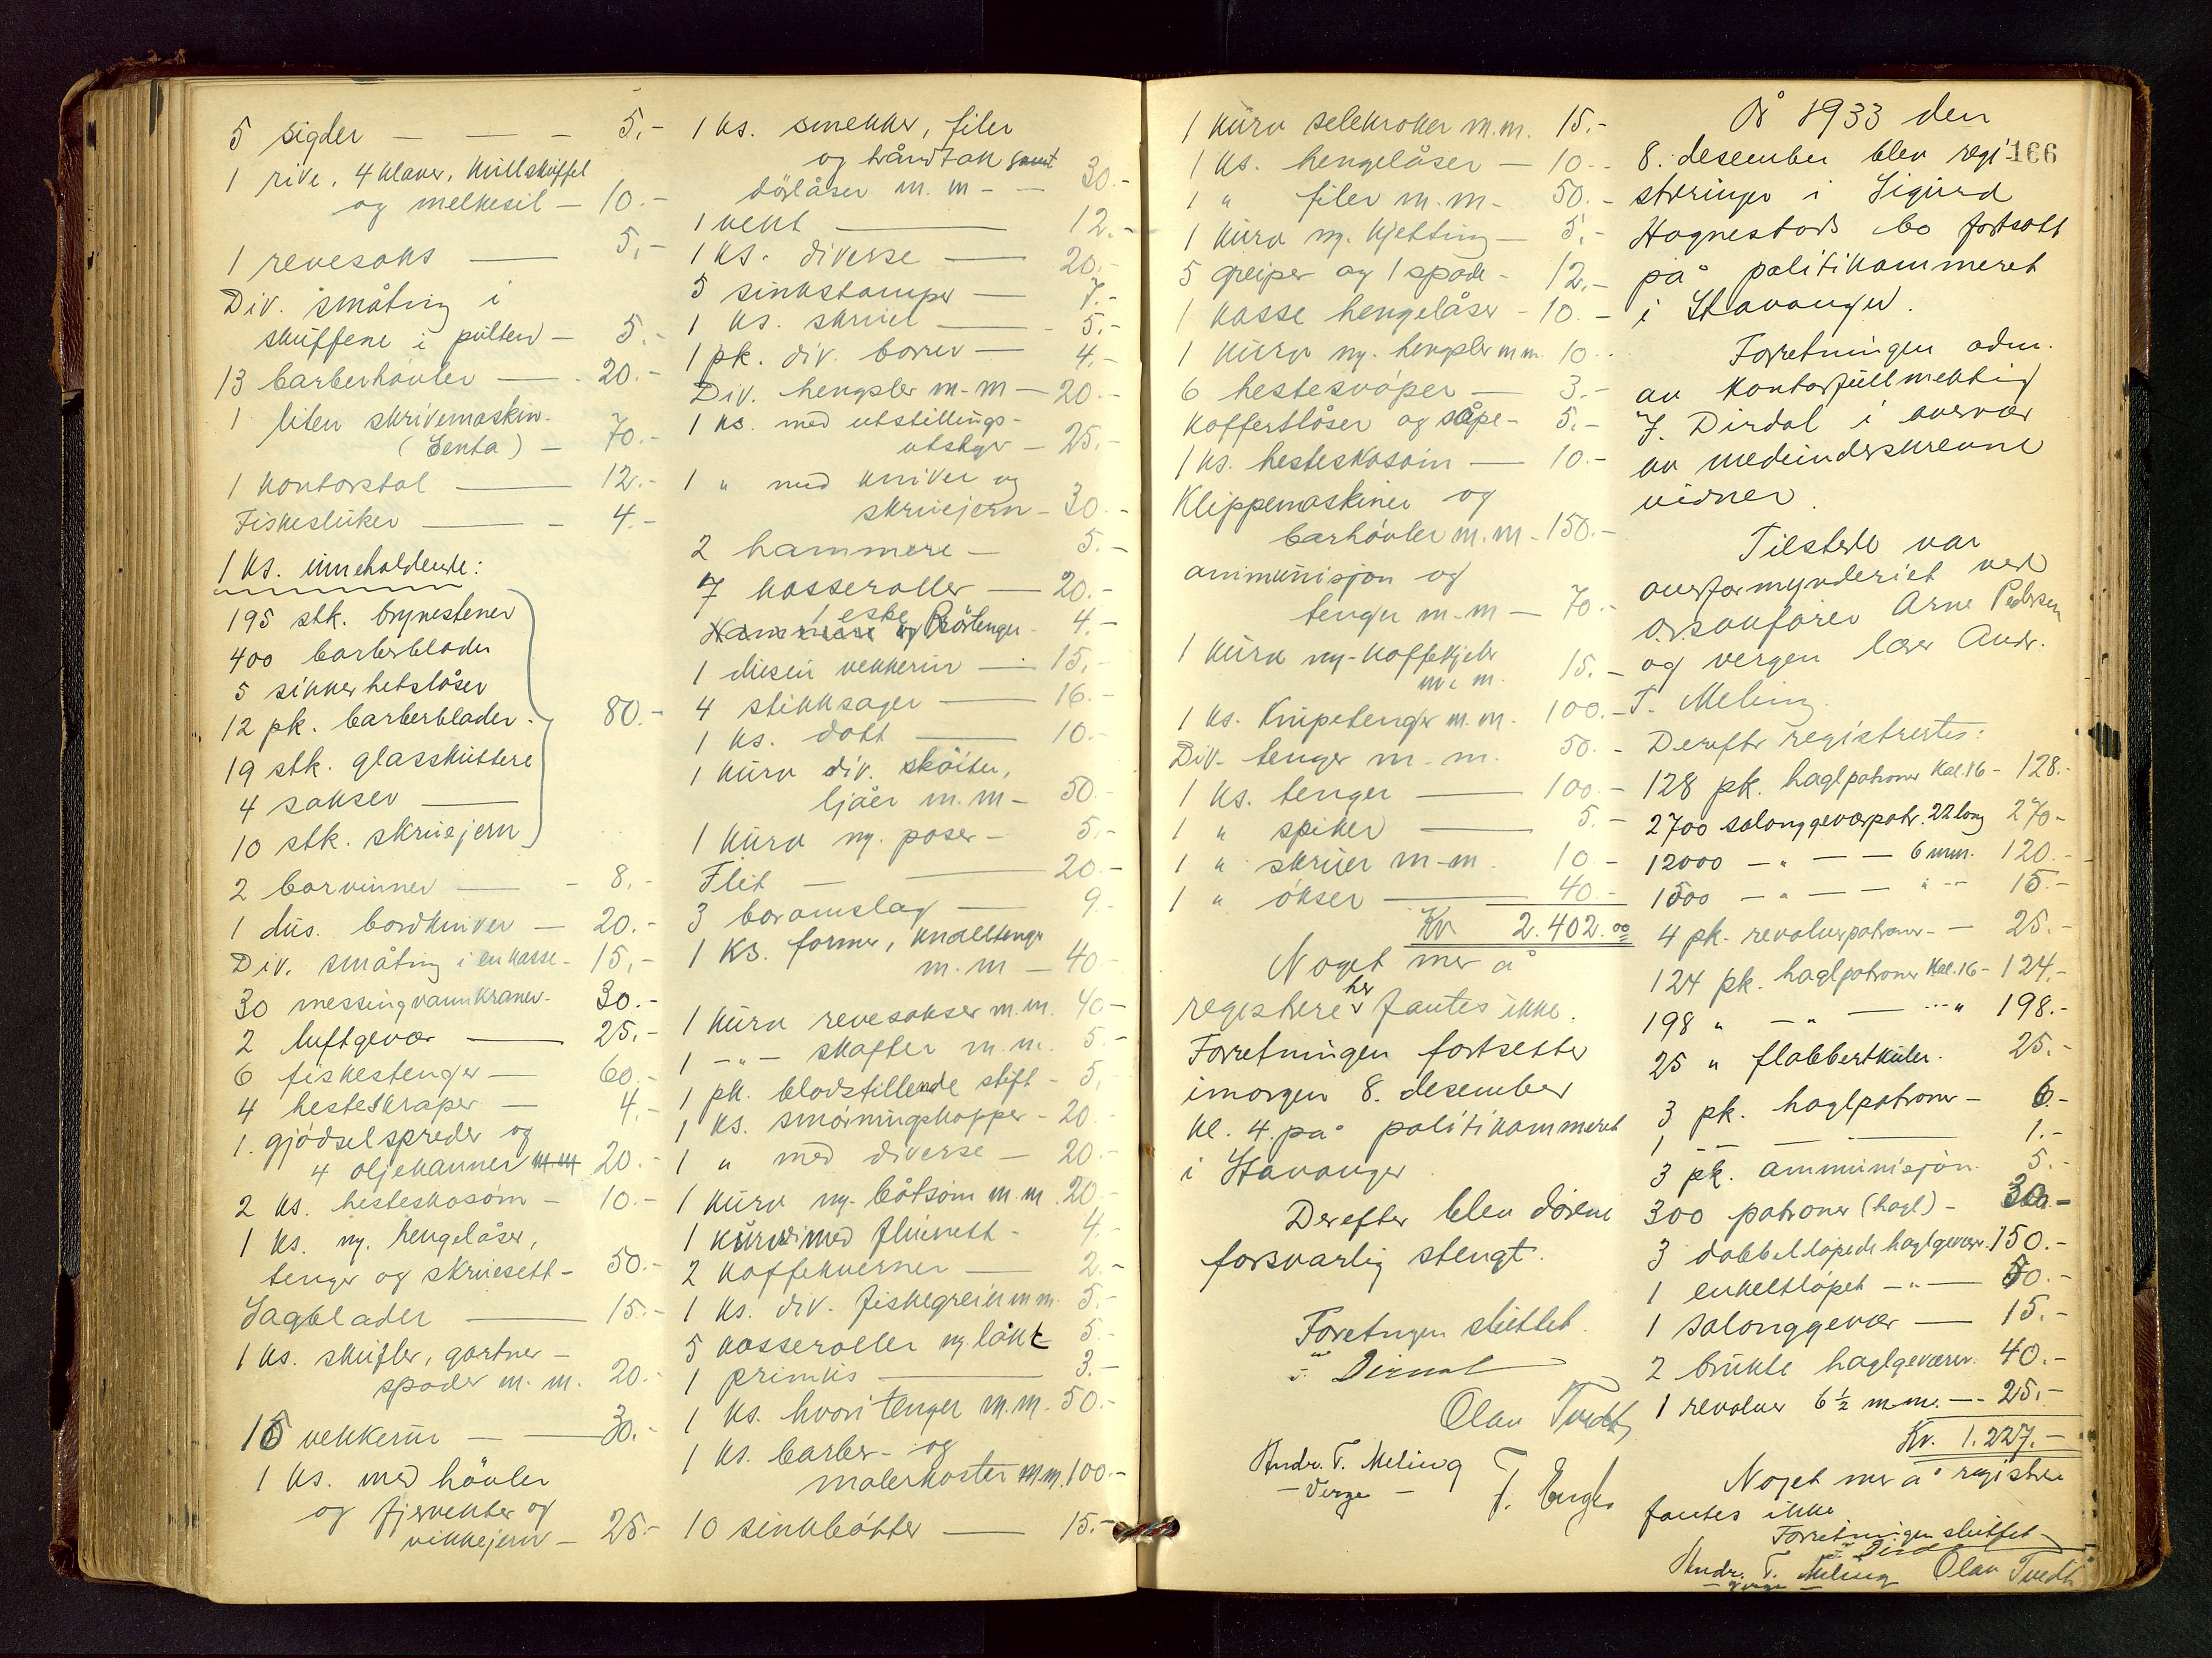 5 sigder — — — 5.-
1 rive, 4 klaver, kullskuffel
og melkesil — 10.-
1 revesaks — 5,-
Div. småting i
skuffene i pulten — 5.-
13 barberhövler — 20.-
1 liten skrivemaskin
(Senta) — 70.-
1 kontorstol — 12.-
Fiskesluker — 4.-
1 ks. inneholdende:
195 stk. brynestener
400 barberblader
5 sikkerhetslåser
12 pk. barberblader. 80.-
19 stk. glasskuttere
4 sakser —
10 stk. skruejern
2 borvinner — 8.-
1 dus. bordkniver — 20.-
Div. småting i en kasse - 15,-
30 messingvannkraner - 30.-
2 luftgevær — 25,-
6 fiskestenger — 60.-
4 hesteskraper — 4.-
1 gjödselspreder og
4 oljekanner m m 20.-
2 ks. hesteskosöm — 10.-
1 ks. m. hengelåser,
tenger og skruesett - 50.-
Sagblader — 15.-
1 ks. skufler, gartner-
spader m. m. 20.-
15 vekkerur — 30.-
1 ks. med hövler
og fjervekter og
vikkejern — 25.-
1 ks. smekker, filer
og håndtak samt
dörlåser m. m — 30.-
1 vekt — 12.-
1 ks. diverse — 20.-
5 sinkstamper — 7.-
1 ks. skruer — 5.-
1 pk. div. borrer — 4.-
Div. hengsler m-m — 20.-
1 ks. med utstillings-
utstyr — 25.-
1 " med kniver og
skruejern - 30.-
2 hammere — 5.-
7 kasseroller — 20.-
Hammere og 1 eske Rörtenger - 4.-
1 dusin vekkerur — 15.-
4 stikksager — 16.-
1 ks. dott — 10.-
1 kurv div. sköiter,
ljåer m.m — 50.-
1 kurv m. poser — 5.-
Flit — 20.-
3 boromslag — 9.-
1 ks. former, knalltenger
m.m — 40.-
1 kurv revesakser m.m. 40.-
1 -"- skafter m.m. 5.-
1 pk. blodstillende stift - 5.-
1 ks. smörningskopper - 20.-
1 " med diverse — 20.-
1 kurv m. båtsöm m.m. 20.-
1 kurv med 4.-
2 kaffekverner — 2.-
1 ks. div. fiskegreier m m. 5.-
5 kasseroller m. lokk 5.-
1 primus — 3.-
1 ks. hovtenger m.m. 50.-
1 ks. barber- og
malerkoster m.m. 100.-
10 sinkbötter — 15.-
1 kurv selekroker m.m. 15.-
1 ks. hengelåser — 10.-
1 " filer m.m. 50.-
1 kurv m. kjetting — 5.-
5 greiper og 1 spade - 12.-
1 kasse hengelåser - 10.-
1 kurv m. hengsler m m. 10.-
6 hestesvöper — 3.-
Koffertlåser og såpe - 5.-
1 ks. hesteskosöm — 10.-
Klippemaskiner og
barhövler m.m - 150.-
ammunisjon og
tenger m.m — 70.-
1 kurv m. kaffekjeler
m. m. 15.-
1 ks. Knipetenger m.m. 100.-
Div. tenger m. m. 50.-
1 ks. tenger — 100.-
1 " spiker — 5.-
1 " skruer m-m. 10.-
1 " økser — 40.-
Kr 2.402.00
Noget mer å
registrere her fantes ikke.
Forretningen fortsetter
imorgen 8. desember
kl. 4. på politikammeret
i Stavanger.
Derefter blev dörene
forsvarlig stengt.
Forretngen sluttet.
J. Dirdal
Olav Tvedt
Andr. T. Meling
- Verge -
År 1933 den
166
8. desember blev regi-
streringen i Sigurd
Hognestads bo fortsatt
på politikammeret
i Stavanger.
Forretningen adm.
av kontorfullmektig
J. Dirdal i overvær
av medunderskrevne
vidner.
Tilstede var
overformynderiet ved
o.r.sakförer Arne Pedersen
og vergen lærer Andr.
T. Meling.
Derefter registrertes:
128 pk. haglpatroner Kal.16 - 128.-
2700 salonggeværpatr. 22 long 270.-
12000 — " — — 6 mm. 120.-
1500 — " — — " -- 15.-
4 pk. revolverpatroner — 25.-
124 pk. haglpatroner Kal.16 - 124.-
198 " — " — " 198.-
25 " flobbertkuler. 25.-
3 pk. haglpatroner — 6.-
1 -- — 1.-
3 pk. ammunisjon. 5.-
300 patroner (hagl) - 30.-
3 dobbeltlöpede haglgevær. 150.-
1 enkeltlöpet — " — 50.-
1 salonggevær — 15.-
2 brukte haglgeværer. 40.-
1 revolver 6 ½ m.m. — 25.-
Kr. 1.227.-
Noget mer å registrere
fantes ikke
Forretningen sluttet
Dirdal
Andr. T. Meling Olav Tvedt
- Verge -